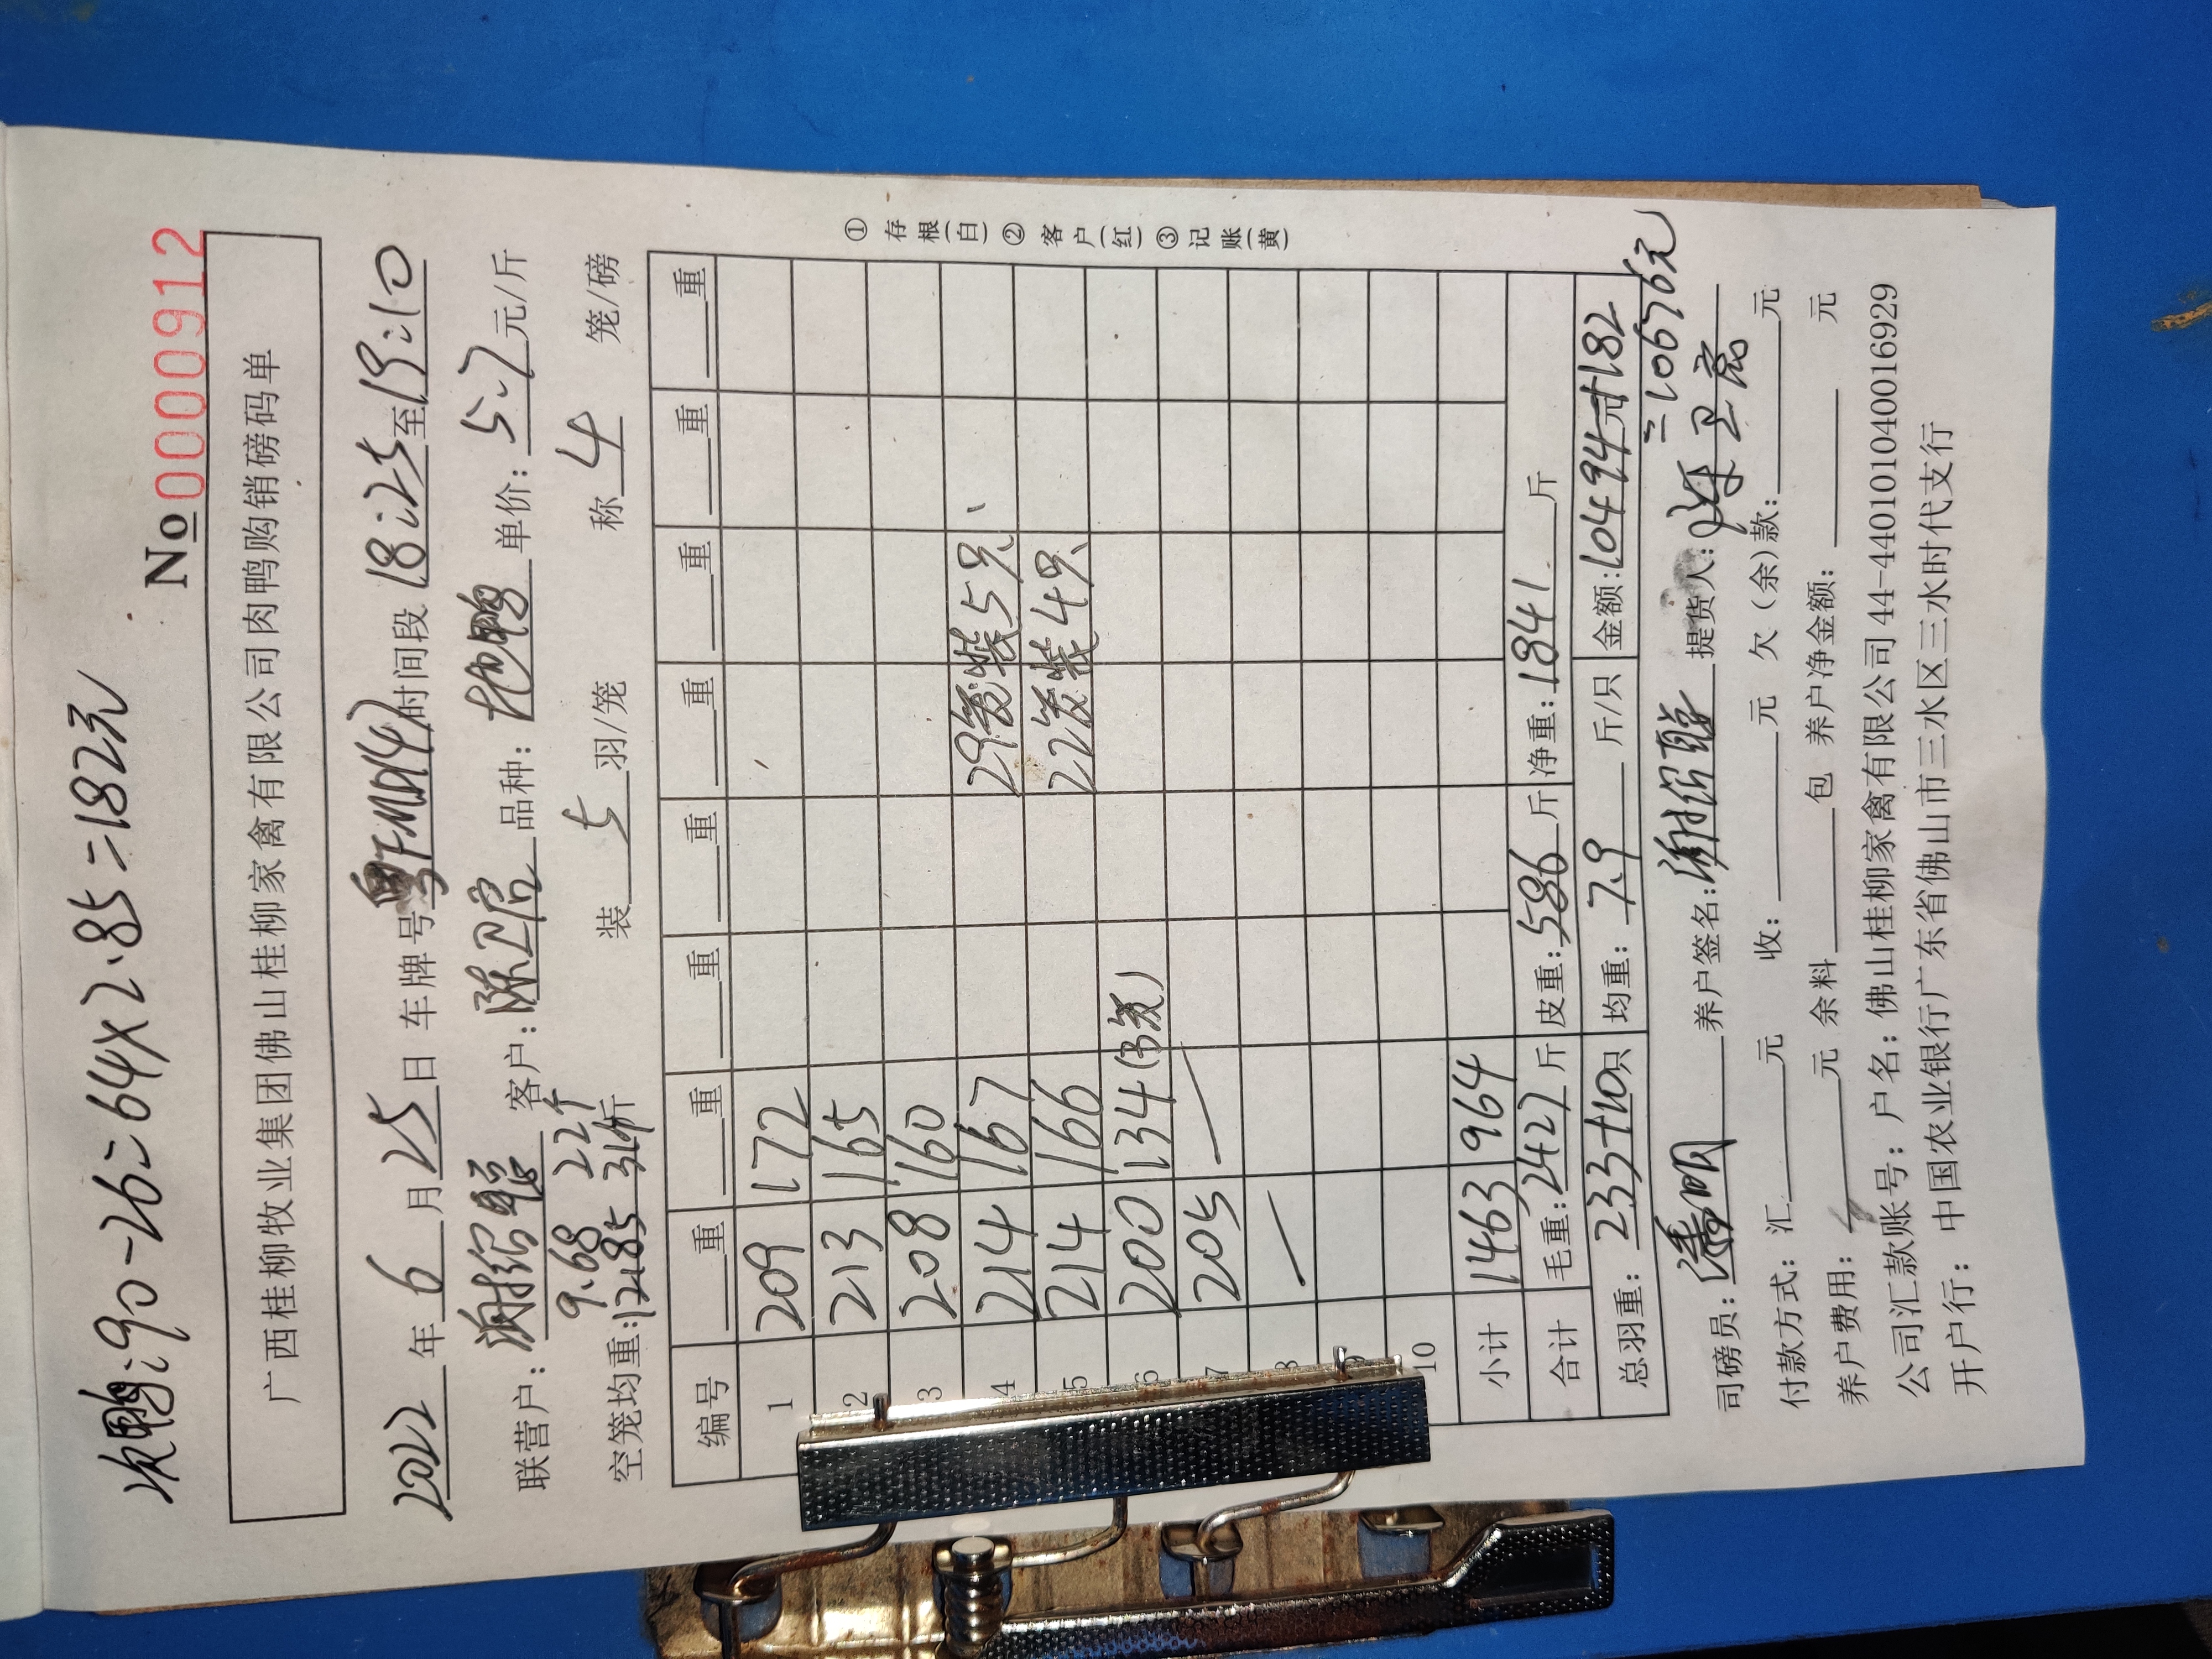 次鸭:90-26=64×2.85=182元
No 0000912
广西桂柳牧业集团佛山桂柳家禽有限公司肉鸭购销磅码单
2022年6月25日 车牌号粤FMD147时间段18:25至19:10
联营户: 谢绍聪 客户: 陈卫启 品种: 抱鸭 单价: 5.7元/斤
9.68 22个
空笼均重: 12185 314斤 装5羽/笼 称4笼/磅
编号 重 重 重 重 重 重 重 重
1 209 172
2 213 165
3 208 160
4 214 167 29笼装5只
5 214 166 22笼装4只
6 200 134 (3笼)
7 205
8
9
10
小计 1463 964
合计 毛重: 2427斤 皮重: 586斤 净重: 1841斤
总羽重: 233+10只 均重: 7.9斤/只 金额: 10494元+182
=10676元
司磅员: 潘明 养户签名: 谢绍聪 提货人: 陈卫启
付款方式: 汇 元 收: 元 欠(余)款: 元
养户费用: 元 余料 包 养户净金额: 元
公司汇款账号: 户名: 佛山桂柳家禽有限公司 44-440101040016929
开户行: 中国农业银行广东省佛山市三水区三水时代支行
①存根(白)②客户(红)③记账(黄)